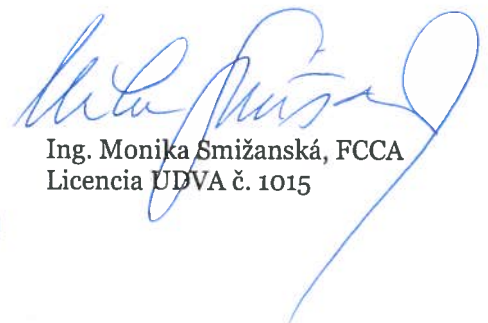 Ing. Monika Smižanská, FCCA
Licencia UDVA č. 1015